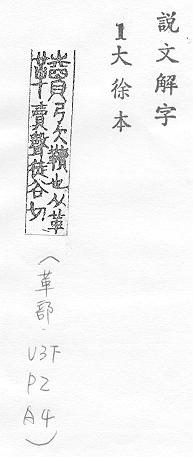 説文解字
1大徐本
韇 弓矢韇也从革
賣聲徒谷切
（革部·
U3下
P2
A4）